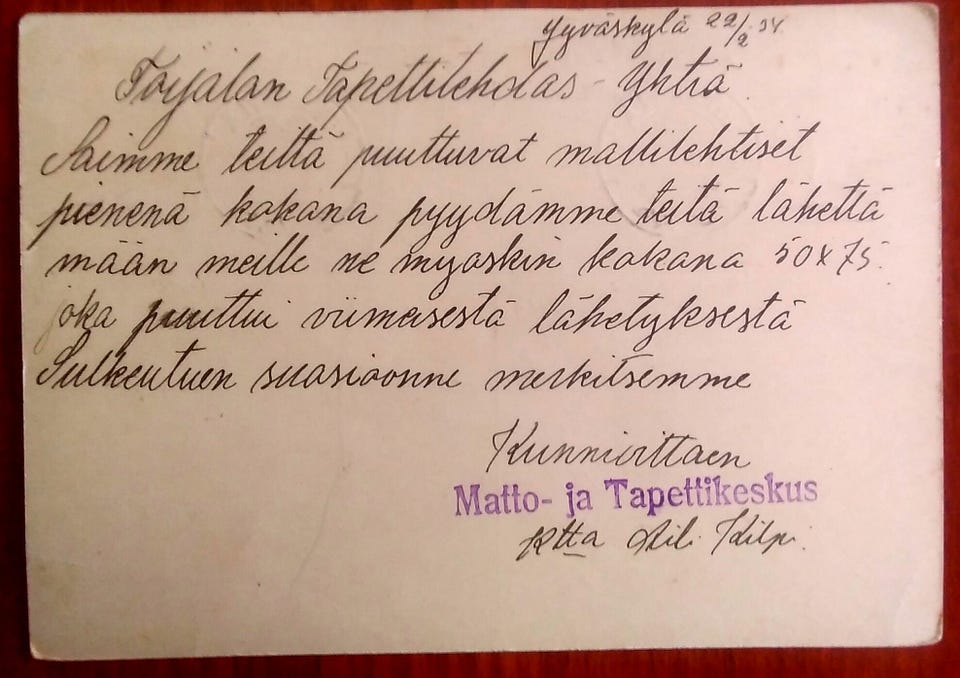 Jyväskylä 22/2 34.
Toijalan Tapettitehdas - Yhtiö
Saimme teiltä puuttuvat mallilehtiset
pienenä kokona pyydämme teitä lähettä
mään meille ne myöskin kokona 50x75.
joka puuttui viimeisestä lähetyksestä
Sulkeutuen suosioonne merkitsemme
Kunnioittaen
Matto- ja Tapettikeskus
Ktta Aili Kilpi.